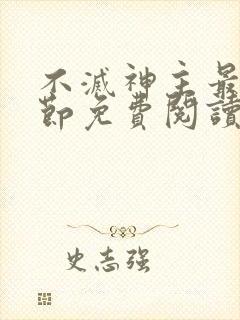 不滅神主最
節免費閱讀
史志强